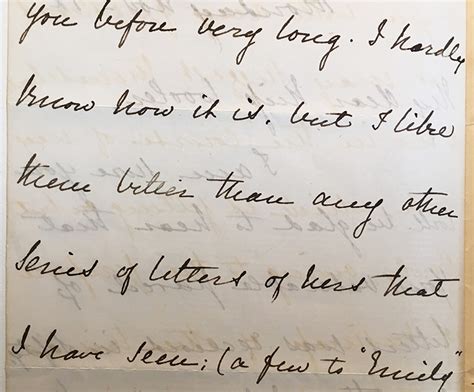 you before very long. I hardly
know how it is, but I like
them better than any other
series of letters of hers that
I have seen; (a few to "Emily"